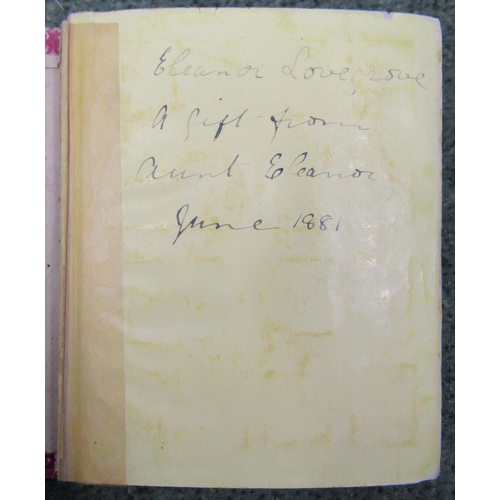 Eleanor Lovegrove
A gift from
Aunt Eleanor
June 1881